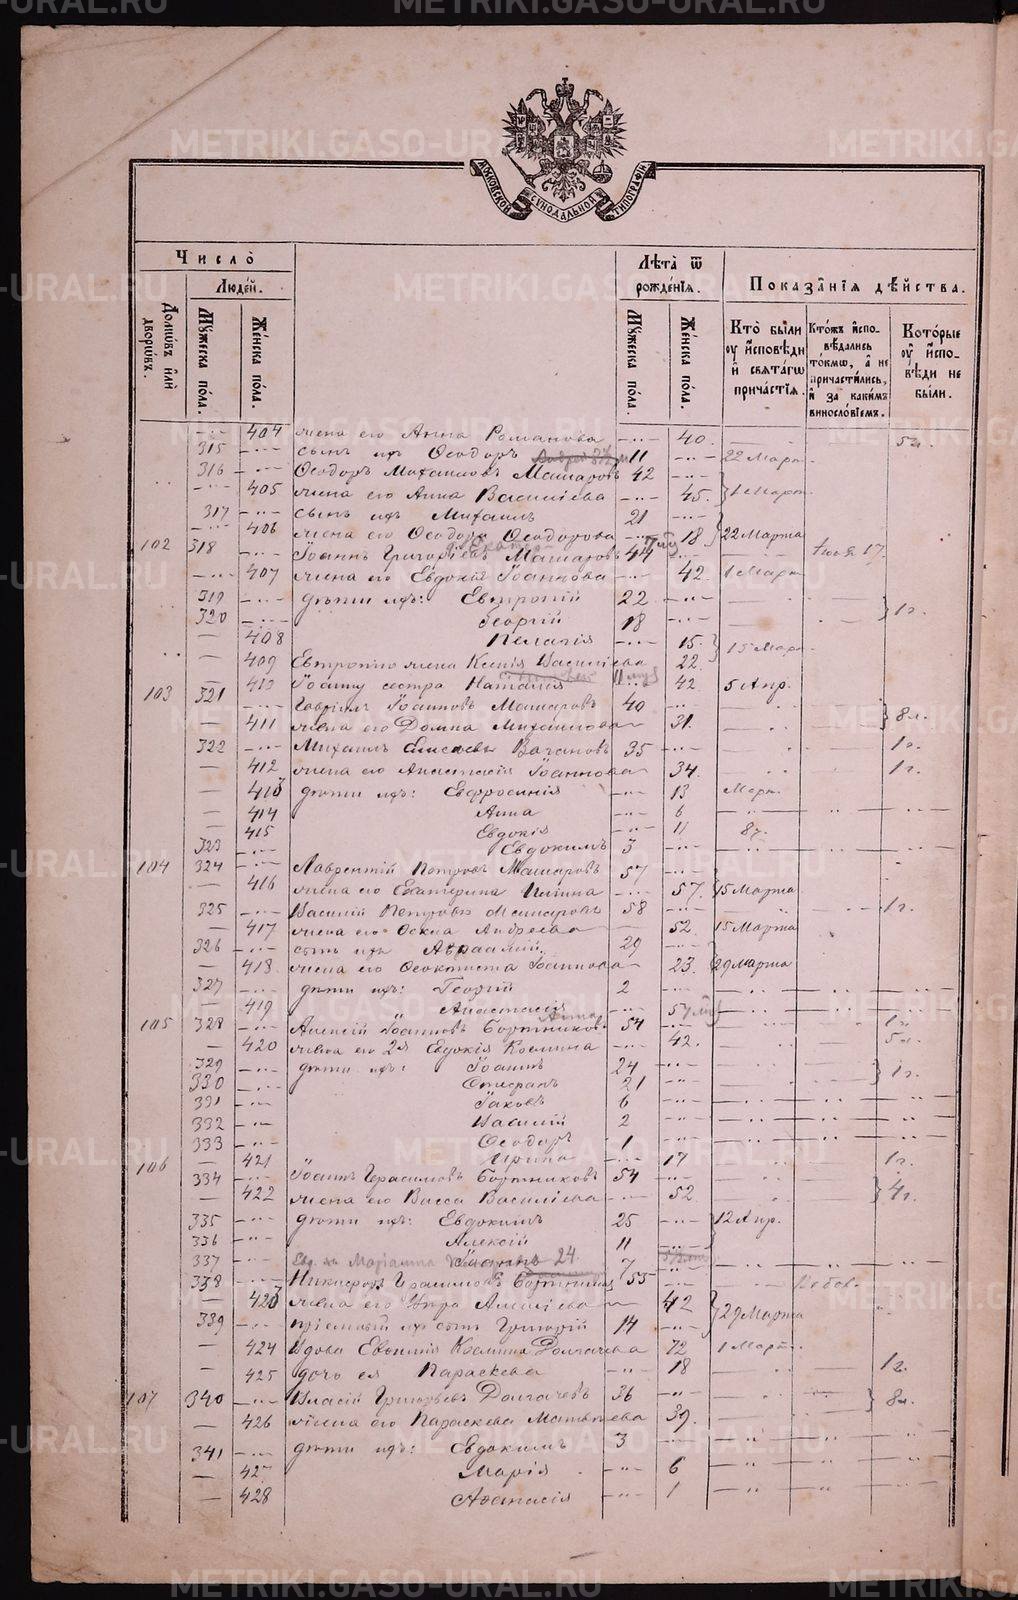 METRIKI.GASO-URAL.RU
МОСКОВСКОЙ СѴНОДАЛЬНОЙ ТИПОГРАФІИ
Число̀
Людей.
Домѡвъ или дворѡвъ.
Мꙋжеска пола.
Женска пола.
Лѣта ѿ рожденїѧ.
Мꙋжеска пола.
Женска пола.
Показанїѧ дѣйства.
Кто были оу исповѣди и свѧтагѡ причастїѧ.
Ктожъ исповѣдались токмѡ, а не причастились, и за какимъ винословїемъ.
Которые оу исповѣди не были.
404 жена его Анна Романова 40
315 сынъ ихъ Ѳеодоръ 11 22 Март.
316 Ѳеодоръ Михаиловъ Машаровъ 42
405 жена его Анна Василіева 45 1 Март.
317 сынъ ихъ Михаилъ 21
406 жена его Ѳеодора Ѳеодорова 18 22 Марта
102 318 Іоаннъ Григоріевъ Машаровъ 44
407 жена его Евдокія Іоаннова 42 1 Март.
319 дѣти ихъ: Евтропій 22
320 Георгій 18 1 г.
408 Пелагія 15 15 Март.
409 Евтропію жена Ксенія Василіева 22
410 Іоанну сестра Наталія 42 5 Апр.
103 321 Гавріилъ Іоанновъ Машаровъ 40
411 жена его Домна Михаилова 31 8 л.
322 Михаилъ Елисеевъ Вагановъ 35 1 г.
412 жена его Анастасія Іоаннова 34 1 г.
413 дѣти ихъ: Евфросинія 13 Март.
414 Анна 6
415 Евдокія 11
323 Евдокимъ 3
104 324 Лаврентій Петровъ Машаровъ 57
416 жена его Екатерина 57 15 Марта
325 Василій Петровъ Машаровъ 58 1 г.
417 жена его Ѳекла Андреева 52 15 Марта
326 сынъ ихъ Авраамій 29
418 жена его Ѳеоктиста Іоаннова 23 29 Марта
327 дѣти ихъ: Георгій 2
419 Анастасія
105 328 Алексій Іоанновъ Бортниковъ 54 1 г.
420 жена его 2я Евдокія Козмина 42 5 л.
329 дѣти ихъ: Іоаннъ 24
330 Стефанъ 21 1 г.
331 Іаковъ 6
332 Василій 2
333 Ѳеодоръ 1
421 Ирина 17 1 г.
106 334 Іоаннъ Герасимовъ Бортниковъ 54
422 жена его Васса Василіева 52 4 г.
335 дѣти ихъ: Евдокимъ 25 12 Апр.
336 Алексій 11
337 Іоаннъ 7
338 Никифоръ Герасимовъ Бортниковъ 55
423 жена его Алексіева 42
339 пріемный ихъ сынъ Григорій 14 29 Марта
424 Вдова Евѳимія Козмина Долгачева 72 1 Март.
425 дочь ея Параскева 18 1 г.
107 340 Власій Григорьевъ Долгачевъ 36
426 жена его Параскева Матвѣева 39 8 л.
341 дѣти ихъ: Евдокимъ 3
427 Марія 6
428 Аѳанасія 1